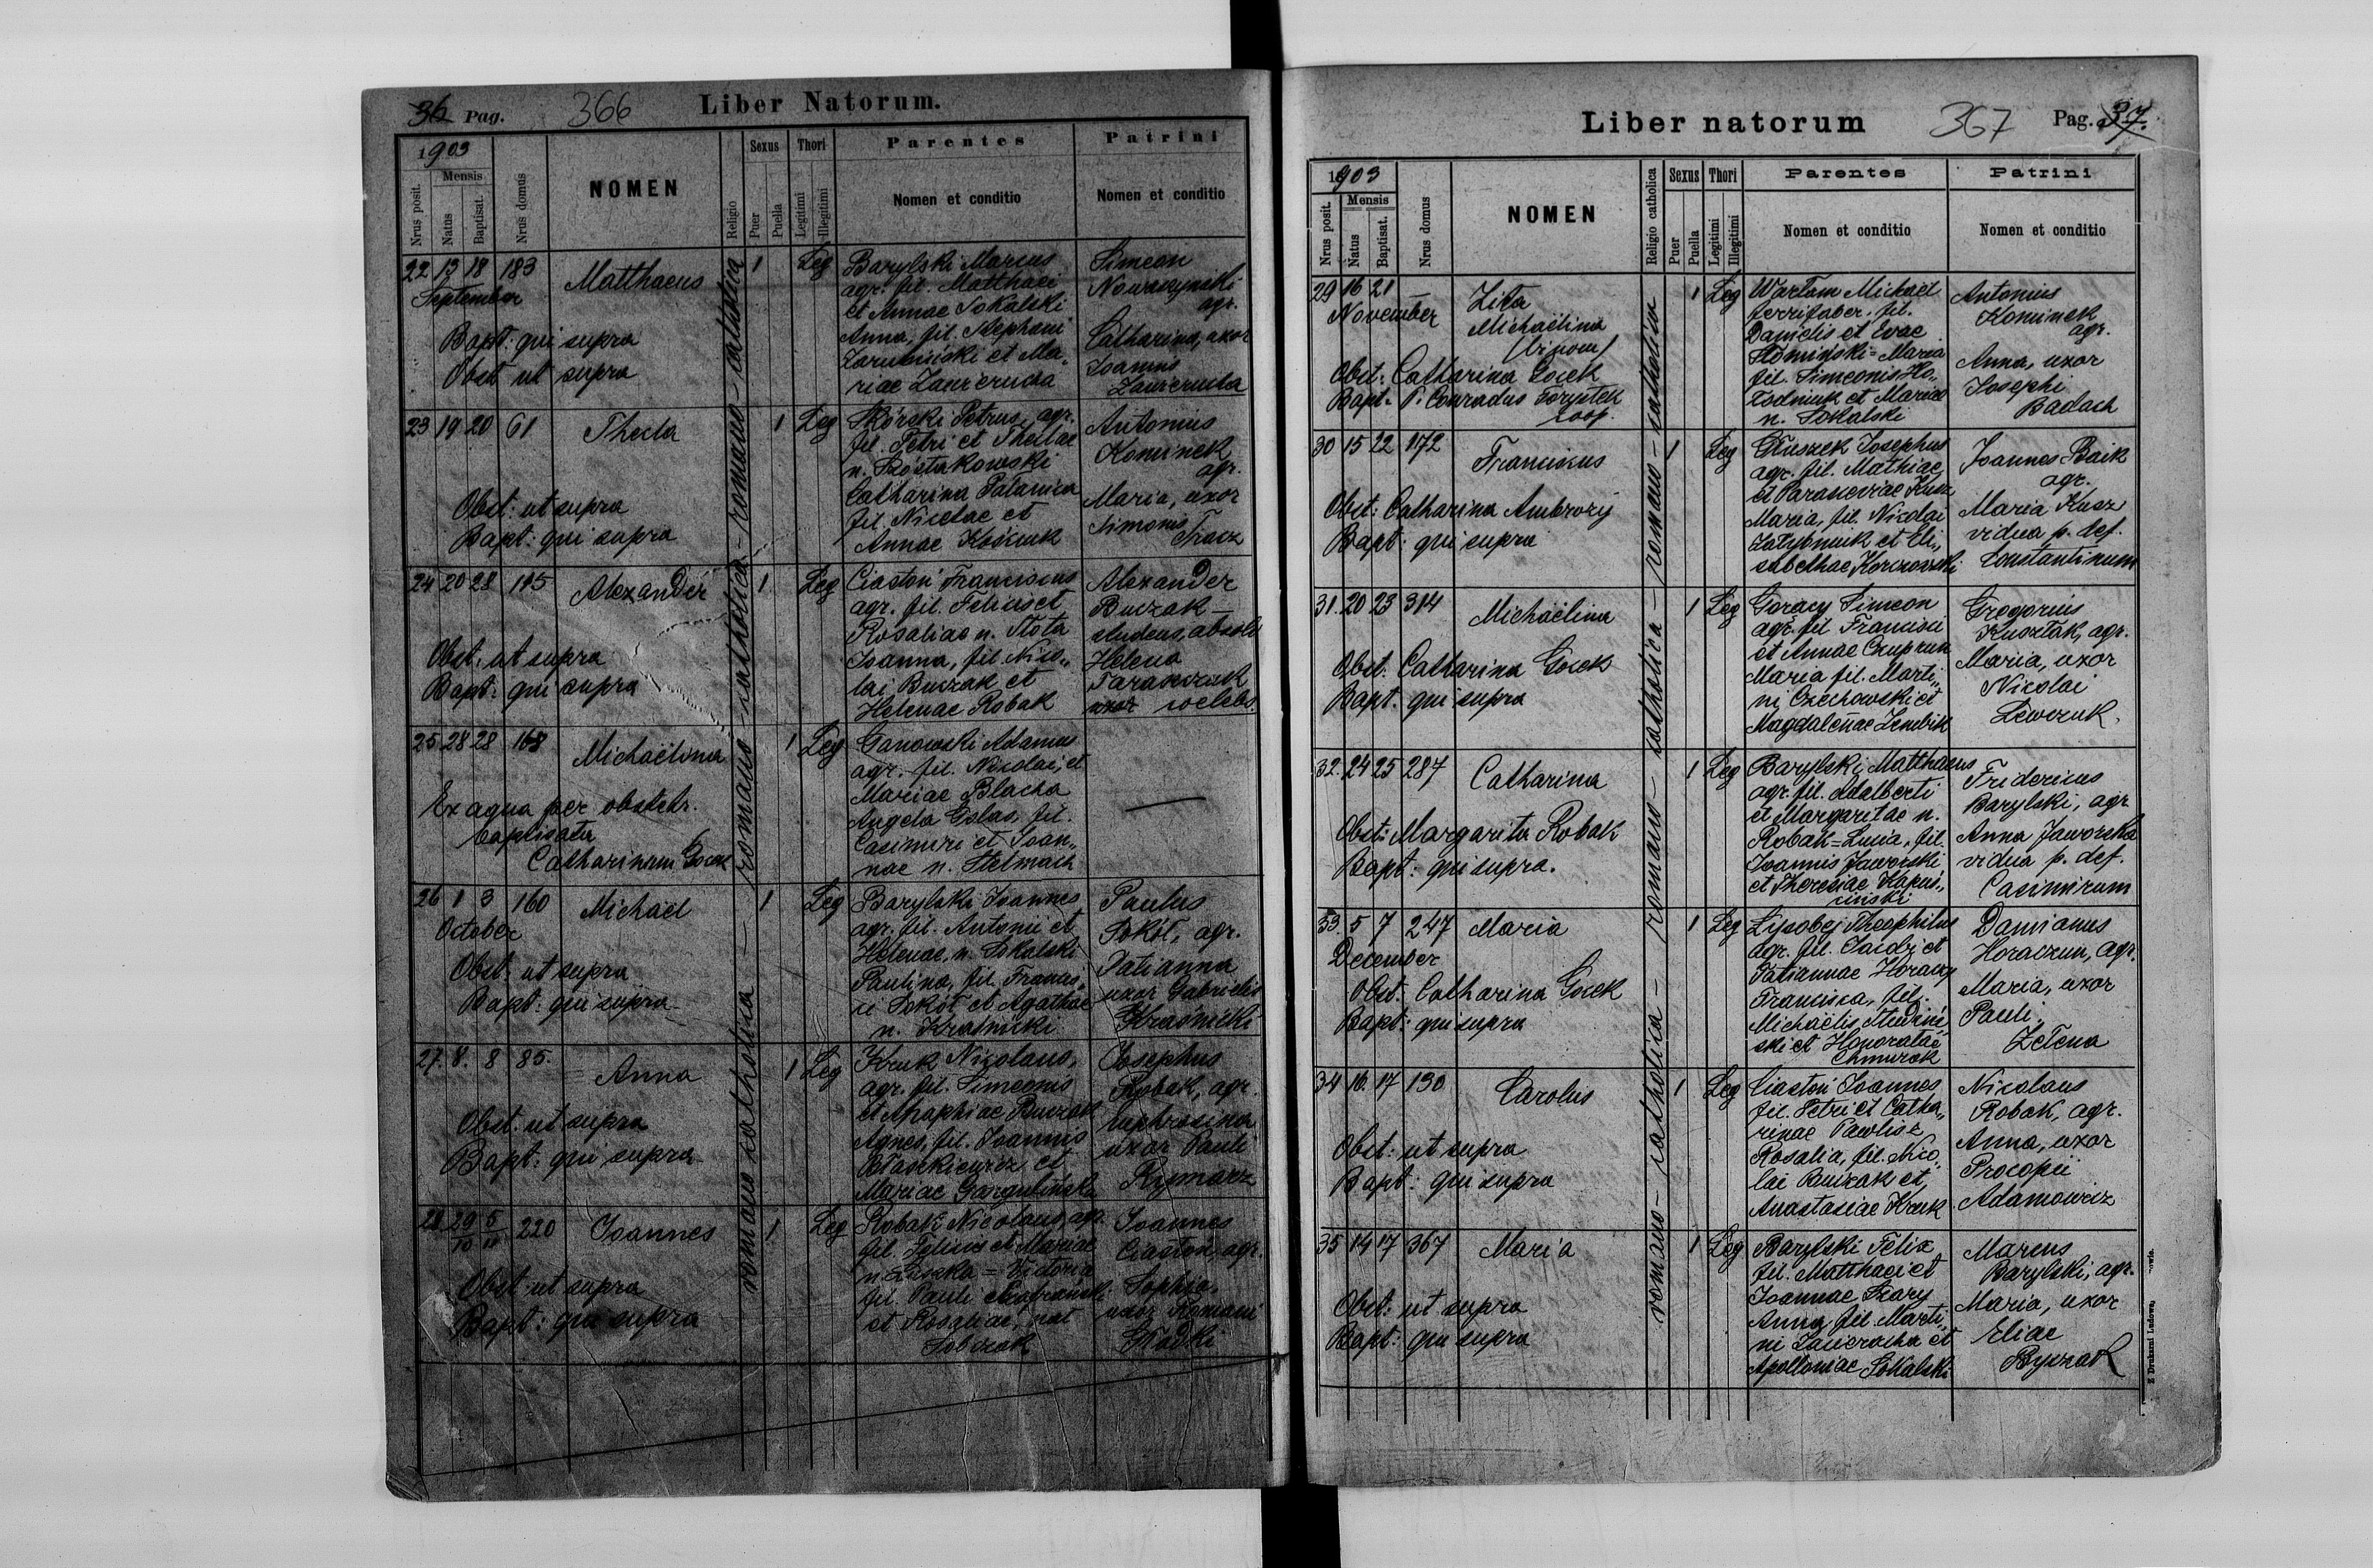 36 Pag. 366 Liber Natorum.
1903
Mensis
Nrus posit.
Natus
Baptisat.
Nrus domus
NOMEN
Religio
Sexus
Puer
Puella
Thori
Legitimi
Illegitimi
Parentes
Nomen et conditio
Patrini
Nomen et conditio
romano catholica - romano catholica - romano catholica
22 13 18 183 Matthaeus 1 Leg
September
Bapt: qui supra
Obst ut supra
Barylski Marcus
agr. fil. Matthaei
et Annae Sokalski
Anna, fil. Stephani
et Ma„
riae Lawrenda
Simeon
Nowaczynski
agr.
Catharina, uxor
Joannis
23 19 20 61 Thecla 1 Leg
Obst: ut supra
Bapt: qui supra
Skórski Petrus, agr.
fil. Petri et Theclae
n. Szóstakowski
Catharina Palanica
fil. Nicetae et
Annae Kościuk
Antonius
Kominek
agr.
Maria, uxor
Simonis
Tracz
24 20 28 195 Alexander 1 Leg
Obst. ut supra
Bapt: qui supra
Ciastoń Franciscus
agr. fil. Felicis et
Rosaliae n. Stota
Joanna, fil. Nico„
lai Buczak et
Helenae Robak
Alexander
Buczak -
studens, absolv
Helena
Tarasczuk
uxor coelebs
25 28 28 168 Michaëlina 1 Leg
Ex aqua per obstetr.
baptisata
Catharinam Gocek
Ganowski Adamus
agr. fil. Nicolai, et
Mariae Blacha
Angela Golas, fil.
Casimiri et Joan„
nae n. Stelmach
26 1 3 160 Michaël 1 Leg
October
Obst: ut supra
Bapt: qui supra
Barylski Joannes
agr. fil. Antonii et
Helenae, n. Sokalski
Paulina, fil. Francis„
ci Sokół et Agathae
n. Kraśnicki
Paulus
Sokół, agr.
Tatianna
uxor Gabrielis
Kraśnicki
27. 8. 8 85. Anna 1 Leg
Obst: ut supra
Bapt: qui supra
Kruk Nicolaus,
agr. fil. Simeonis
et Agaphiae Buczak
Agnes, fil. Joannis
Błaszkiewicz et
Mariae Gargulińska
Josephus
Robak, agr.
Euphrosina
uxor Pauli
Rymarz
28 29/10 5/11 220 Joannes 1 Leg
Obst: ut supra
Bapt: qui supra
Robak Nicolaus, agr.
fil. Felicis et Mariae
n. Puszka = Victoria
fil. Pauli
et Rosaliae, nat
Sobczak
Joannes
Ciastoń, agr.
Sophia,
uxor Romani
Śladki
Liber natorum 367 Pag. 37.
1903
Mensis
Nrus posit.
Natus
Baptisat.
Nrus domus
NOMEN
Religio catholica
Sexus
Puer
Puella
Thori
Legitimi
Illegitimi
Parentes
Nomen et conditio
Patrini
Nomen et conditio
romano - catholica - romano - catholica - romano - catholica
29 16 21 — Zita 1 Leg
November Michaëlina
(binom)
Obst: Catharina Gocek
Bapt. P. Conradus Forystek
coop.
Wartam Michaël
ferrifaber. fil.
Danielis et Evae
Słomiński = Maria
fil. Simeonis Ho„
et Mariae
n. Sokalski
Antonius
Kominek
agr.
Anna, uxor
Josephi
Badach
30 15 22 172 Franciscus 1 Leg
Obst: Catharina Ambrozy
Bapt: qui supra
Głuszek Josephus
agr. fil. Mathiae
et Parasceviae Kusz
Maria, fil. Nicolai
Załybniuk et Eli„
sabethae Korczowski
Joannes Baik
agr.
Maria Kusz
vidua p. def.
Constantinum
31. 20 23 314 Michaëlina 1 Leg
Obst: Catharina Gocek
Bapt. qui supra
Goracy Simeon
agr. fil Francisci
et Annae Czuprun
Maria fil. Marti„
ni Czechowski et
Magdalenae Zendzik
Gregorius
Kusztak, agr.
Maria, uxor
Nicolai
Lewczuk.
32. 24 25 287 Catharina 1 Leg
Obst: Margarita Robak
Bapt: qui supra.
Barylski Matthaeus
agr. fil. Adalberti
et Margaritae n.
Robak = Lucia, fil.
Joannis Jaworski
et Theresiae Kapuś„
ciński
Fridericus
Barylski, agr
Anna Jaworska
vidua p. def.
Casimirum
33. 5 7 247 Maria 1 Leg
December
Obst: Catharina Gocek
Bapt: qui supra
Lysobej Theophilus
agr. fil. Isidri et
Tatiannae Horaczy
Francisca, fil.
Michaëlis Studziń
ski et Honoratae
Chmurak
Damianus
Horaczun, agr.
Maria, uxor
Pauli
Zełena
34 16. 17 130 Carolus 1 Leg
Obst: ut supra
Bapt: qui supra
Ciastoń Joannes
fil. Petri et Catha„
rinae Pawlisz
Rosalia, fil. Nico„
lai Buczak et,
Anastasiae Kruk
Nicolaus
Robak, agr.
Anna, uxor
Procopii
Adamowicz
35 14 17 367 Maria 1 Leg
Obst: ut supra
Bapt: qui supra
Barylski Felix
fil. Matthaei et
Joannae Szary
Anna, fil. Marti„
ni et
Apolloniae Sokalski
Marcus
Barylski, agr.
Maria, uxor
Eliae
Byczak
Z Drukarni Ludowej